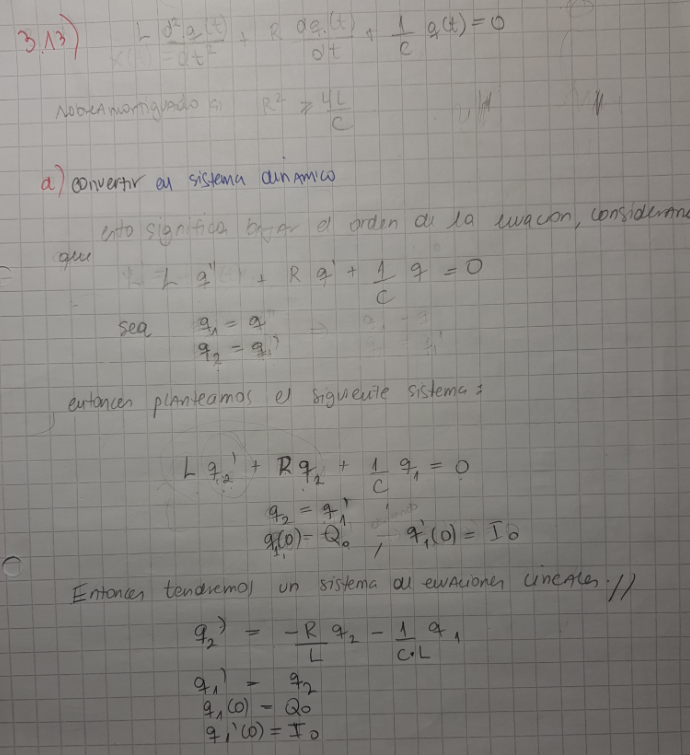 3.13) L d²q(t)/dt² + R dq(t)/dt + 1/C q(t) = 0
sobreamortiguado si R² ≥ 4L/C
a) convertir en sistema dinámico
esto significa bajar el orden de la ecuación, considerando
que
L q'' + R q' + 1/C q = 0
sea q₁ = q
q₂ = q₁'
entonces planteamos el siguiente sistema:
L q₂' + R q₂ + 1/C q₁ = 0
q₂ = q₁'
q₁(0) = Q₀ , q₁'(0) = I₀
Entonces tendremos un sistema de ecuaciones lineales.//
q₂' = -R/L q₂ - 1/C·L q₁
q₁' = q₂
q₁(0) = Q₀
q₁'(0) = I₀